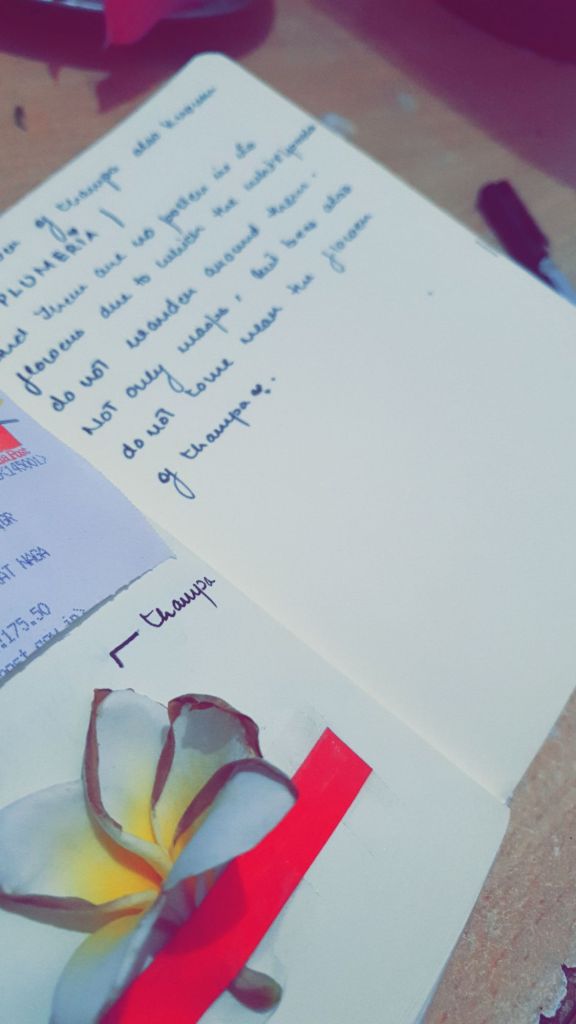 of thampa also known
PLUMERIA
and There are no pollen in it
flowers due to which the
do not wander around them.
Not only wasps, but bees also
do not come near the flower
of thampa
ia Post
<145001>
AT NAGA
:175.50
thampa